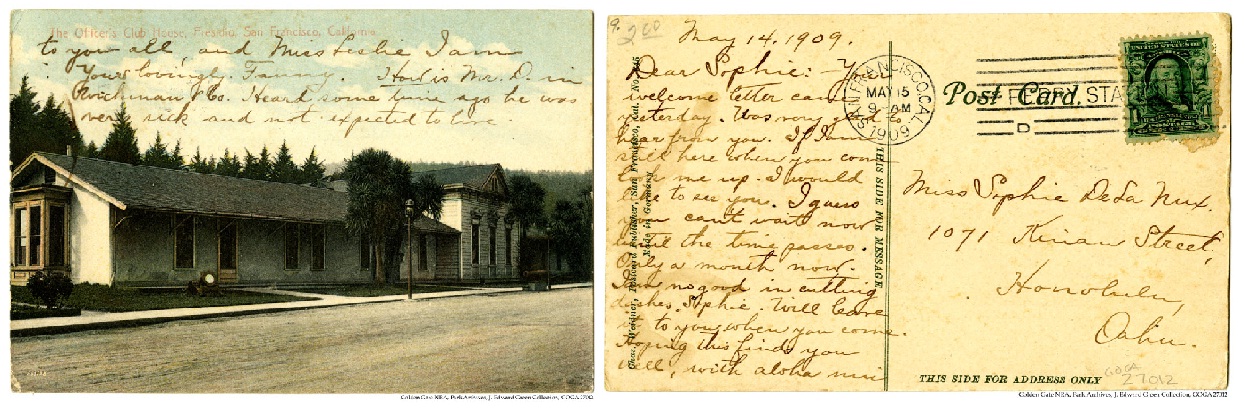 The Officer's Club House, Presidio, San Francisco, California.
to you all, and Miss Leslie I am
Your lovingly. Fanny. How is Mr. D. in
& Co. Heard some time ago he was
very sick and not expected to live.
Golden Gate NRA, Park Archives, J. Edward Green Collection, GOGA 27012
9.
200
May 14. 1909.
Dear Sophie: Your
welcome letter came
yesterday. Was very glad
hear from you. If I am
still here when you come
look me up. I would
like to see you. I guess
you can't wait now
until the time passes.
Only a month now.
I am no good in cutting
dishes. Sophie. Will leave
it to you when you come.
Hoping this find you
well, with aloha nui
Chas. Weidner, Postcard Publisher, San Francisco, Cal. No.
Made in Germany
THIS SIDE FOR MESSAGE
SAN FRANCISCO, CAL.
MAY 15
9 - AM
1909
FERRY STA
D
Post Card.
UNITED STATES
Miss Sophie DeLa Nux.
1071 Kinau Street,
Honolulu,
Oahu.
THIS SIDE FOR ADDRESS ONLY
GOGA
27012
Golden Gate NRA, Park Archives, J. Edward Green Collection, GOGA 27012